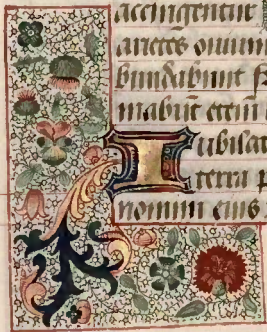 accingentur
arietes ouium
bundabunt f
mabūt etenī
Iubilat
terra p
nomini eius